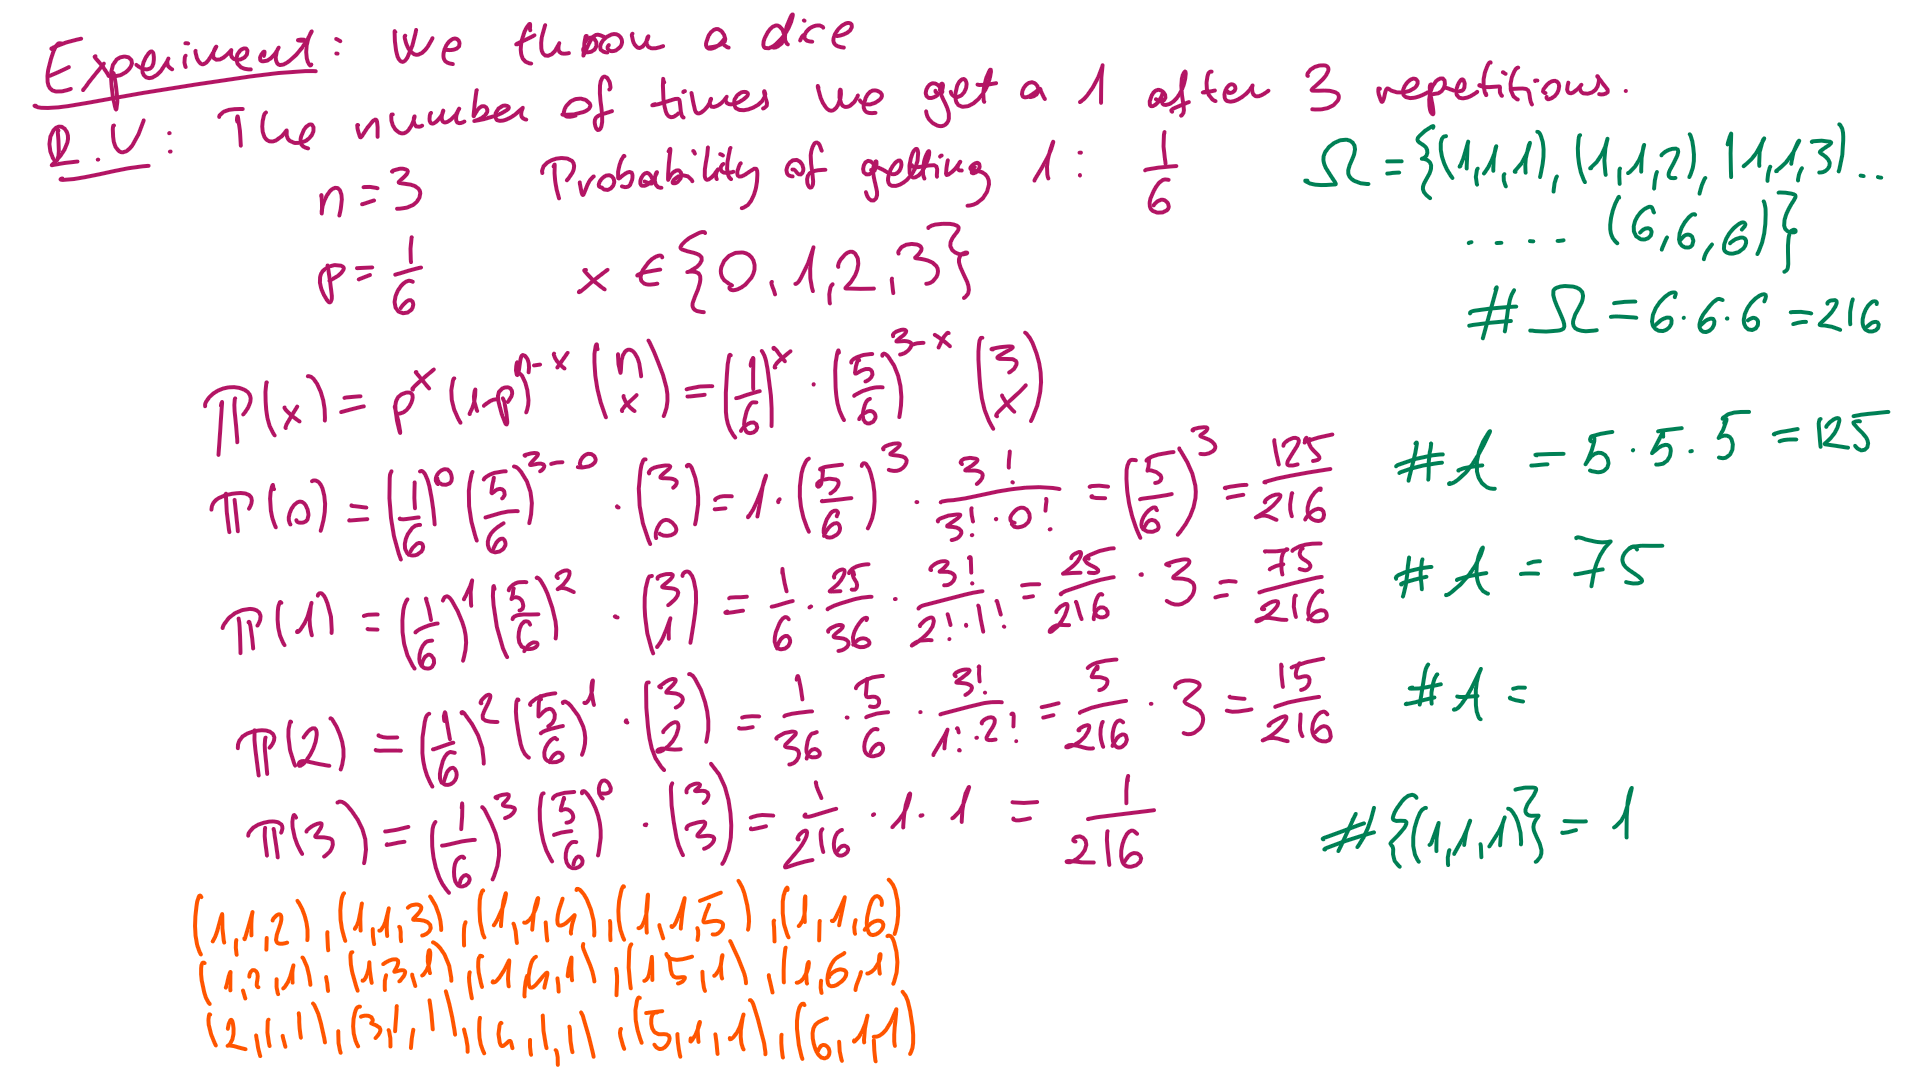 Experiment: We throw a dice
R.V: The number of times we get a 1 after 3 repetitions.
n=3 Probability of getting 1: 1/6
Ω = {(1,1,1), (1,1,2), (1,1,3)...
.... (6,6,6)}
p = 1/6 x ∈ {0,1,2,3}
#Ω = 6·6·6 = 216
ℙ(x) = p^x (1-p)^(n-x) (n x) = (1/6)^x · (5/6)^(3-x) (3 x)
ℙ(0) = (1/6)^0 (5/6)^(3-0) · (3 0) = 1·(5/6)^3 · 3!/(3!·0!) = (5/6)^3 = 125/216 #A = 5·5·5 = 125
ℙ(1) = (1/6)^1 (5/6)^2 · (3 1) = 1/6 · 25/36 · 3!/(2!·1!) = 25/216 · 3 = 75/216 #A = 75
ℙ(2) = (1/6)^2 (5/6)^1 · (3 2) = 1/36 · 5/6 · 3!/(1!·2!) = 5/216 · 3 = 15/216 #A =
ℙ(3) = (1/6)^3 (5/6)^0 · (3 3) = 1/216 · 1 · 1 = 1/216 #{(1,1,1)} = 1
(1,1,2), (1,1,3), (1,1,4), (1,1,5), (1,1,6)
(1,2,1), (1,3,1), (1,4,1), (1,5,1), (1,6,1)
(2,1,1), (3,1,1), (4,1,1), (5,1,1), (6,1,1)